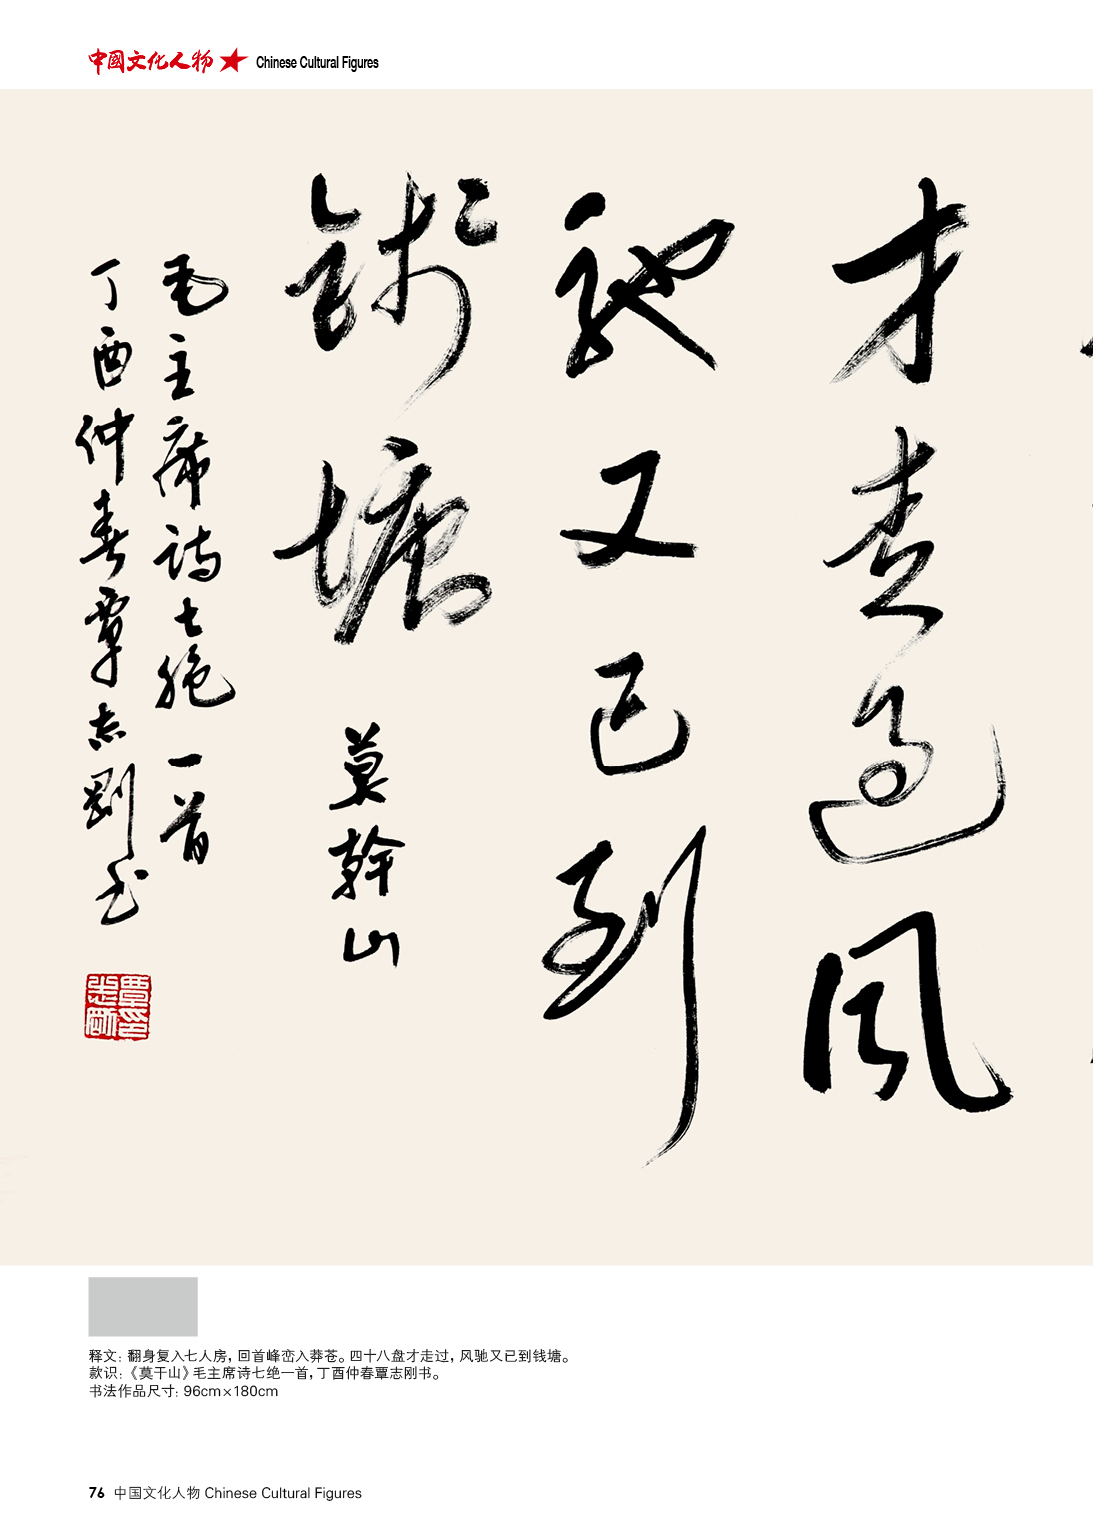 中國文化人物 Chinese Cultural Figures
才走過風
馳又已到
錢塘 莫幹山
毛主席詩七絶一首
丁酉仲春覃志剛书
覃志剛印
释文：翻身复入七人房，回首峰峦入莽苍。四十八盘才走过，风驰又已到钱塘。
款识：《莫干山》毛主席诗七绝一首，丁酉仲春覃志刚书。
书法作品尺寸：96cm×180cm
76 中国文化人物 Chinese Cultural Figures